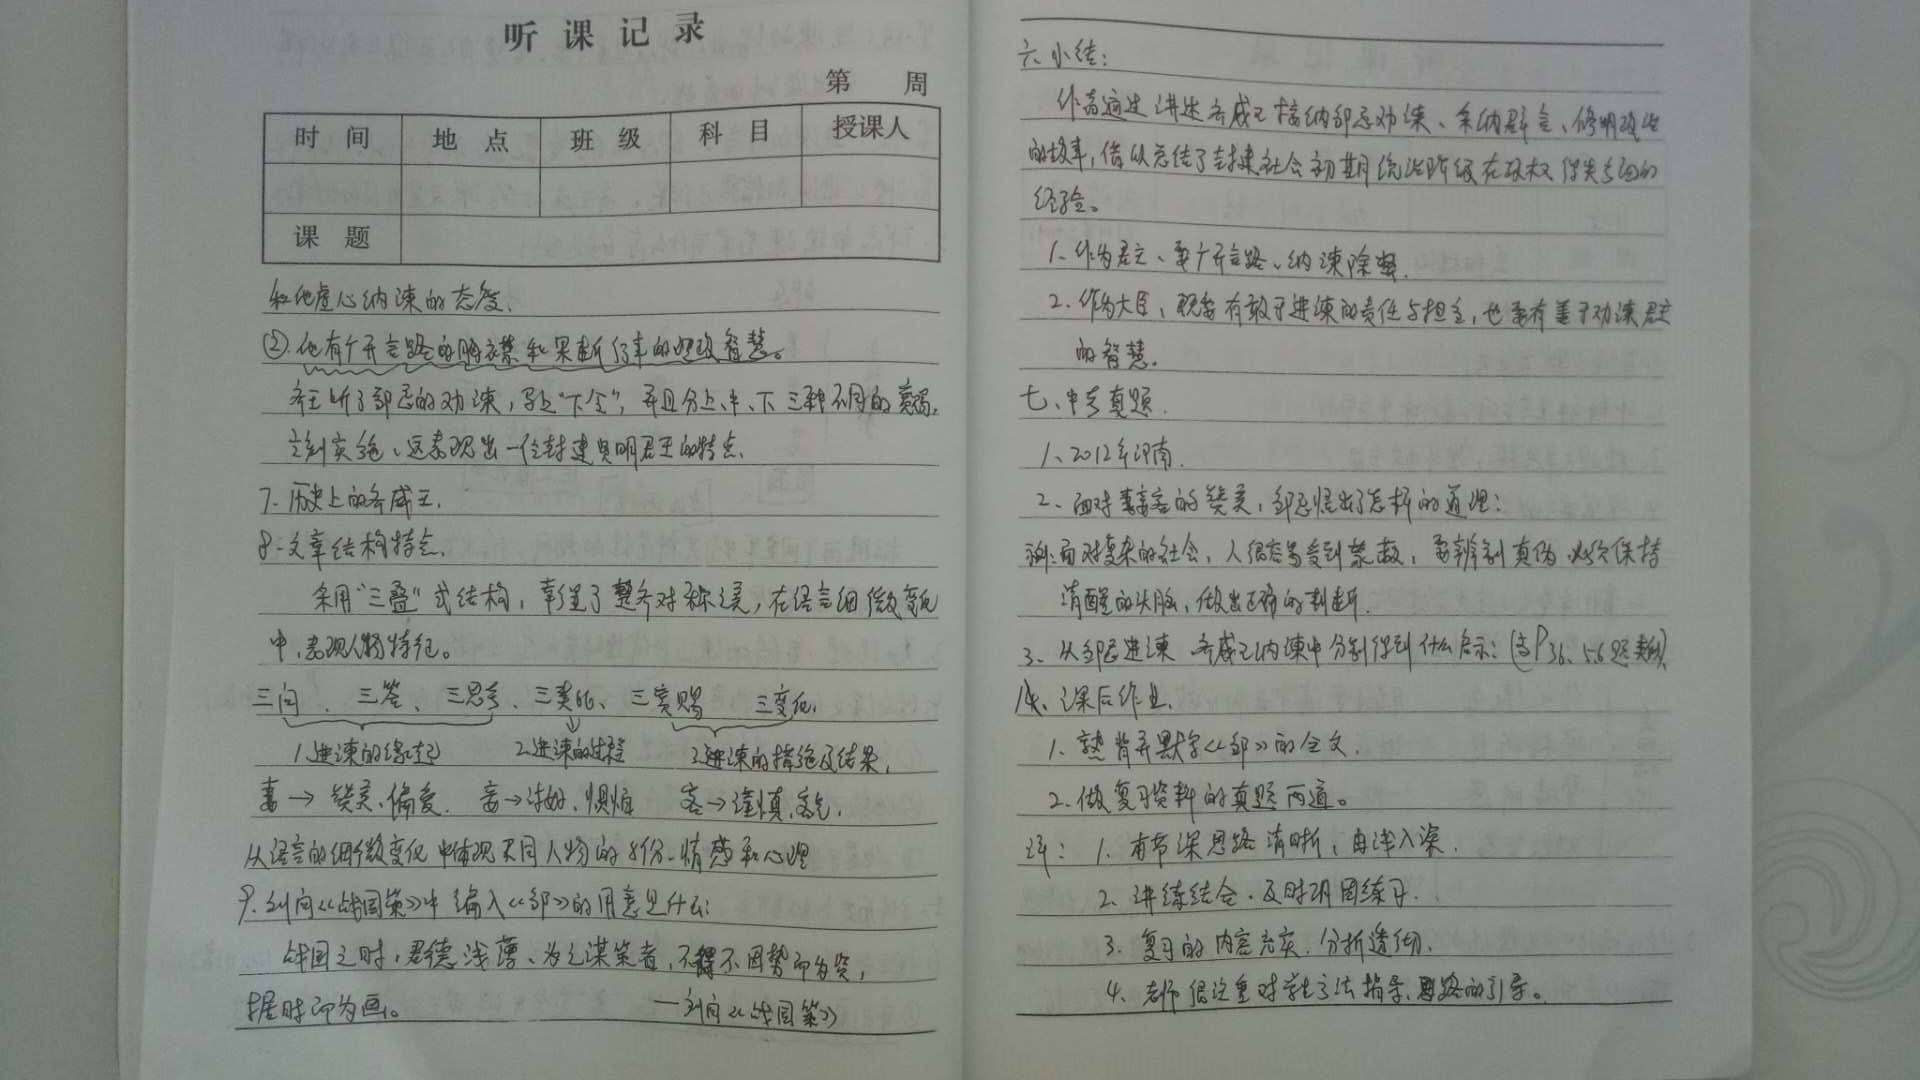 听课记录
第 周
时间 地点 班级 科目 授课人
课题
和他虚心纳谏的态度.
②.他有广开言路的胸襟和果断行事的理政智慧。
齐王听了邹忌的劝谏,马上“下令”,并且分上、中、下三种不同的赏赐,
立刻实施、这表现出一位封建贤明君王的特点、
7.历史上的齐威王.
8.文章结构特点.
采用“三叠”式结构,掌握了整齐对称之美,在语言细微变化
中,表现人物特征。
三问、三答、三思考、三类比、三赏赐 三变化.
1.进谏的缘起 2.进谏的过程 3.进谏的措施及结果,
妻→赞美、偏爱. 妾→讨好、惧怕 客→谨慎,
从语言的细微变化中体现不同人物的身份、情感和心理
9.刘向《战国策》中编入《邹》的用意是什么:
战国之时,君德浅薄、为之谋策者,不得不因势而为资,
据时而为画。 —刘向《战国策》
六、小结:
作者通过讲述齐威王接纳邹忌劝谏、采纳群言、修明政治
的故事,借以总结了封建社会初期统治阶级在政权得失方面的
经验。
1.作为君主、要广开言路、纳谏除弊.
2.作为大臣,既要有敢于进谏的责任与担当,也要有善于劝谏君主
的智慧.
七、中考真题.
1、2012年河南.
2、面对妻妾客的赞美,邹忌悟出了怎样的道理:
面对复杂的社会,人很容易受到蒙蔽,要辨别真伪 必须保持
清醒的头脑,做出正确的判断.
3、从邹忌进谏 齐威王纳谏中分别得到什么启示:(与P36、5.6题类似)
八、课后作业.
1.熟背并默写《邹》的全文.
2.做复习资料的真题两道。
评:1.本节课思路清晰,由浅入深.
2.讲练结合.及时巩固练习.
3.复习的内容充实.分析透彻.
4.老师很注重对学生方法指导、思路的引导。